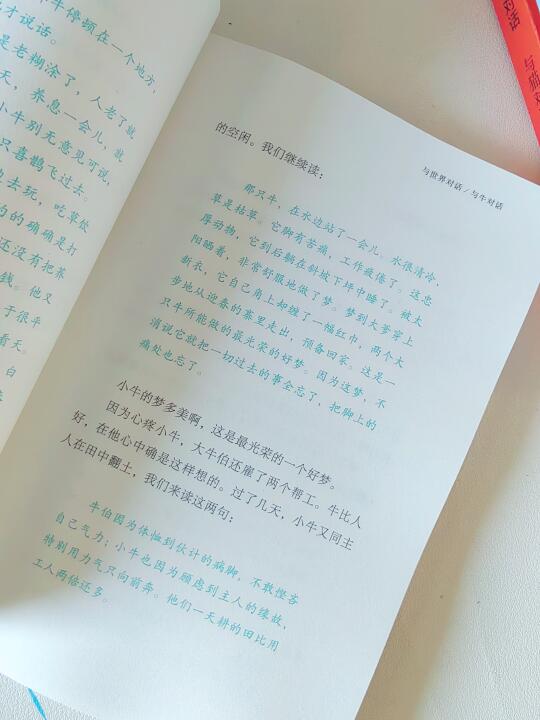 牛停顿在一个地方，
才说话。
是老糊涂了，人老了就
天，养息一会儿，就
小牛别无意见可说，
只喜鹊飞过去。
去玩，吃草饮
的的确确是打
还没有把荞
钱。他又
于很平
看天。
白
与世界对话 / 与牛对话
的空闲。我们继续读：
那只牛，在水边站了一会儿。水很清冷，
草是枯草。它脚有苦痛，工作疲倦了。这忠
厚动物，它到后躺在斜坡下坪中睡了。被太
阳晒着，非常舒服地做了梦。梦到大爹穿上
新衣，它自己角上却缠了一幅红巾，两个大
步地从迎春的寨里走出，预备回家。这是一
只牛所能做的最光荣的好梦。因为这梦，不
消说它就把一切过去的事全忘了，把脚上的
痛处也忘了。
小牛的梦多美啊，这是最光荣的一个好梦。
因为心疼小牛，大牛伯还雇了两个帮工。牛比人
好，在他心中确是这样想的。过了几天，小牛又同主
人在田中翻土，我们来读这两句：
牛伯因为体恤到伙计的病脚，不敢悭吝
自己气力；小牛也因为顾虑到主人的缘故，
特别用力气只向前奔。他们一天耕的田比用
工人两倍还多。